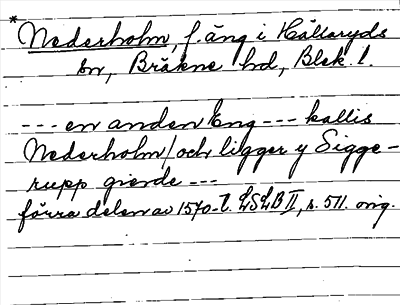 * Nederholm, f. äng i Hällaryds
sn, Bräkne hd, Blek. l.
--- en anden Eng --- kallis
Nederholm/och ligger y Sigge-
rupp gierde ---
förra delen av 1570-t. LSLB II, s. 511. orig.